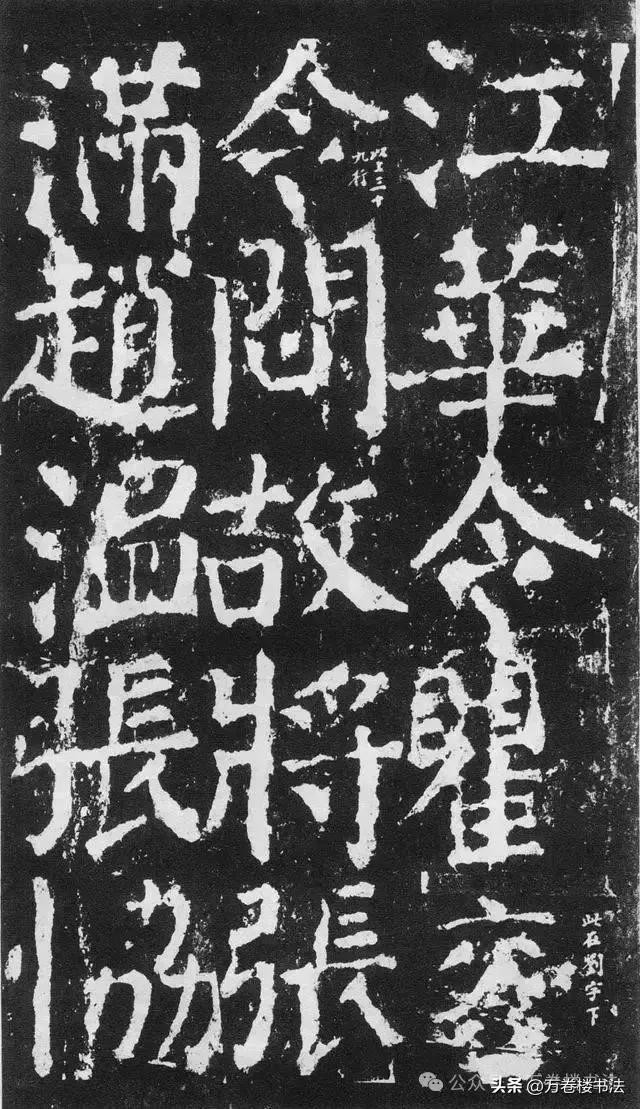 江華令瞿
此在劉字下
令問故將張
三十
九行
滿趙溫張協
公众号·万卷楼书法
头条 @万卷楼书法